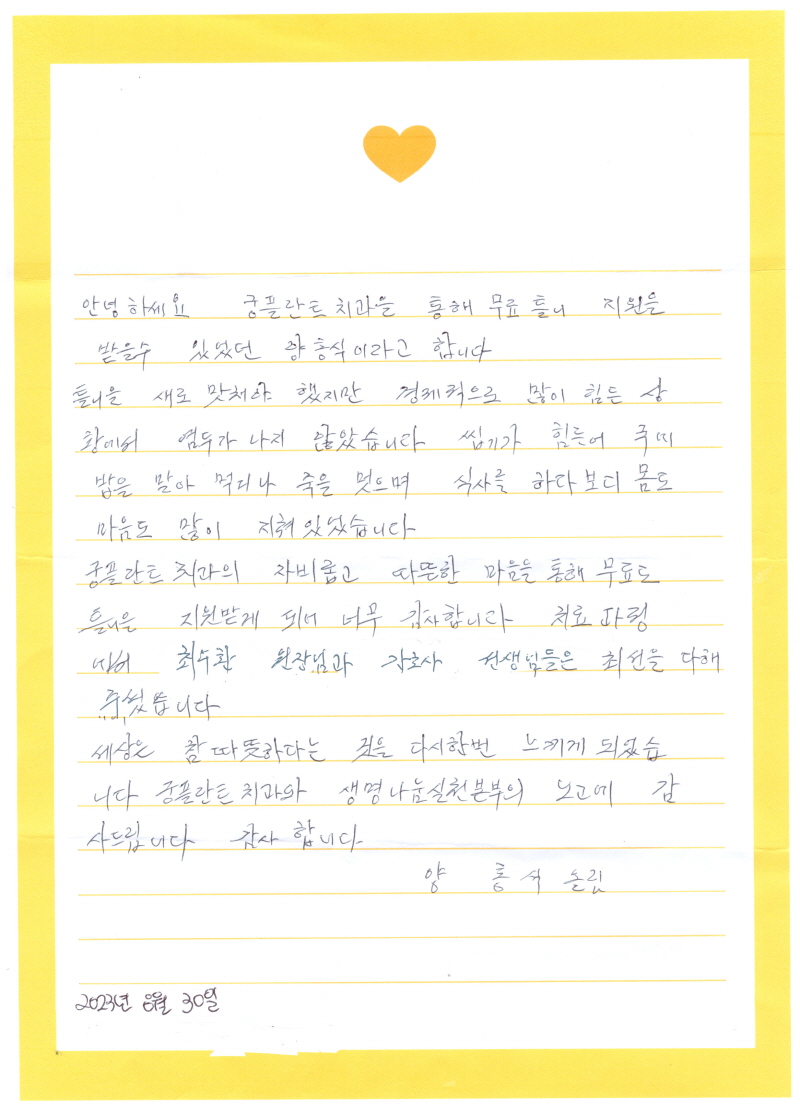 안녕하세요 궁플란트 치과을 통해 무료 틀니 지원을
받을수 있었던 양홍식이라고 합니다
틀니을 새로 맞쳐야 했지만 경제적으로 많이 힘든 상
황에서 염두가 나지 않았습니다 씹기가 힘들어 국에
밥을 말아 먹더나 죽을 먹으며 식사를 하다보니 몸도
마음도 많이 지쳐있었습니다
궁플란트 치과의 자비롭고 따뜻한 마음을 통해 무료도
틀니을 지원받게 되어 너무 감사합니다 치료 과정
에서 최수환 원장님과 간호사 선생님들은 최선을 다해
주셨습니다
세상은 참 따뜻하다는 것을 다시한번 느끼게 되었습
니다 궁플란트 치과와 생명나눔실천본부의 노고에 감
사드립니다 감사합니다
양 홍식 올림
2023년 6월 30일